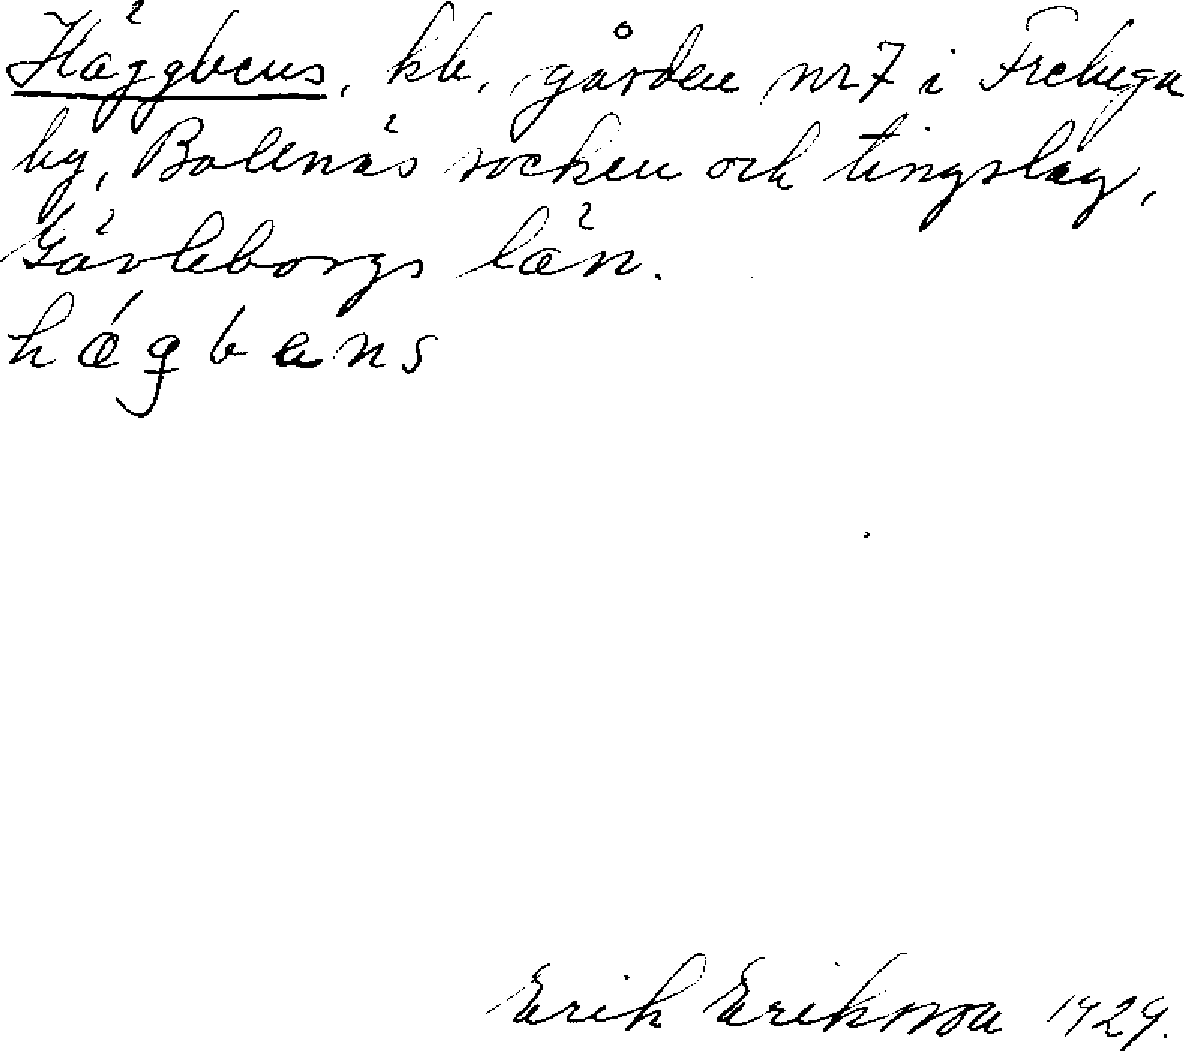 Häggbens, kb. gården nr 7 i Freluga
by, Bollnäs socken och tingslag,
Gävleborgs län.
hǽgbens
Erik Eriksson 1929.